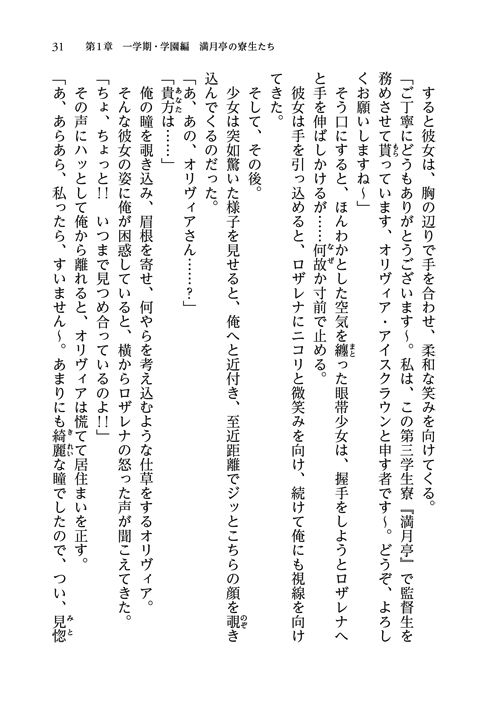 31　第1章　一学期・学園編　満月亭の寮生たち
　すると彼女は、胸の辺りで手を合わせ、柔和な笑みを向けてくる。
「ご丁寧にどうもありがとうございます～。私は、この第三学生寮『満月亭』で監督生を
務めさせて貰っています、オリヴィア・アイスクラウンと申す者です～。どうぞ、よろし
くお願いしますね～」
　そう口にすると、ほんわかとした空気を纏った眼帯少女は、握手をしようとロザレナへ
と手を伸ばしかけるが……何故か寸前で止める。
　彼女は手を引っ込めると、ロザレナにニコリと微笑みを向け、続けて俺にも視線を向け
てきた。
　そして、その後。
　少女は突如驚いた様子を見せると、俺へと近付き、至近距離でジッとこちらの顔を覗き
込んでくるのだった。
「あ、あの、オリヴィアさん……？」
「貴方は……」
　俺の瞳を覗き込み、眉根を寄せ、何やらを考え込むような仕草をするオリヴィア。
　そんな彼女の姿に俺が困惑していると、横からロザレナの怒った声が聞こえてきた。
「ちょ、ちょっと!!　いつまで見つめ合っているのよ!!」
　その声にハッとして俺から離れると、オリヴィアは慌てて居住まいを正す。
「あ、あらあら、私ったら、すいません～。あまりにも綺麗な瞳でしたので、つい、見惚